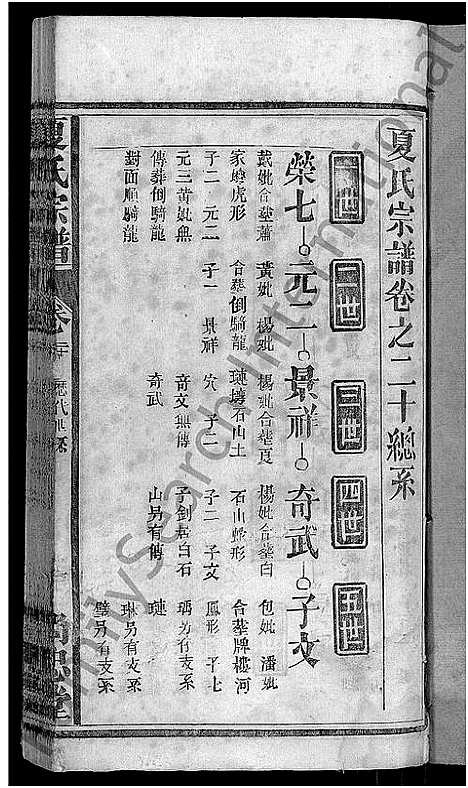 夏氏宗譜卷之二十總系
一世 二世 三世 四世 五世
榮七 元二 景祥 奇武 子文
戴妣合塟蕭 黃妣 楊妣 楊妣合塟夏 楊妣合塟白 包妣 潘妣
家嘴虎形 合塟倒騎龍 璉塘石山土 石山蛇形 合塟牌樓河
子二 元二 子一 景祥 穴 子二 子二 子文 鳳形 子七
元三黃妣無 奇文無傳 子劍居白石 瑀另有支系
傳塟倒騎龍 奇武 山另有傳 璉
對面順騎龍 琳另有支系
璧另有支系
夏氏宗譜 卷二十 歷代世系 尚忠堂
FamilySearch International